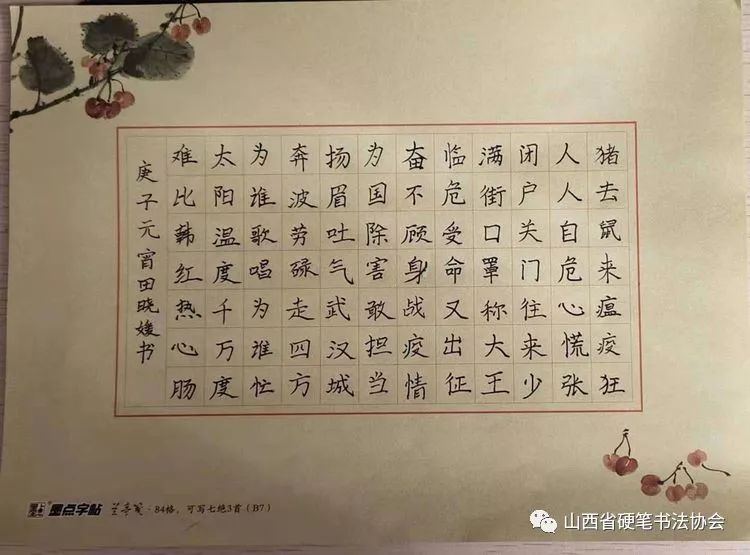 猪去鼠来瘟疫狂
人人自危心慌张
闭户关门往来少
满街口罩称大王
临危受命又出征
奋不顾身战疫情
为国除害敢担当
扬眉吐气武汉城
奔波劳碌走四方
为谁歌唱为谁忙
太阳温度千万度
难比韩红热心肠
庚子元宵田晓媛书
墨点字帖 兰亭笺·84格，可写七绝3首（B7）
山西省硬笔书法协会